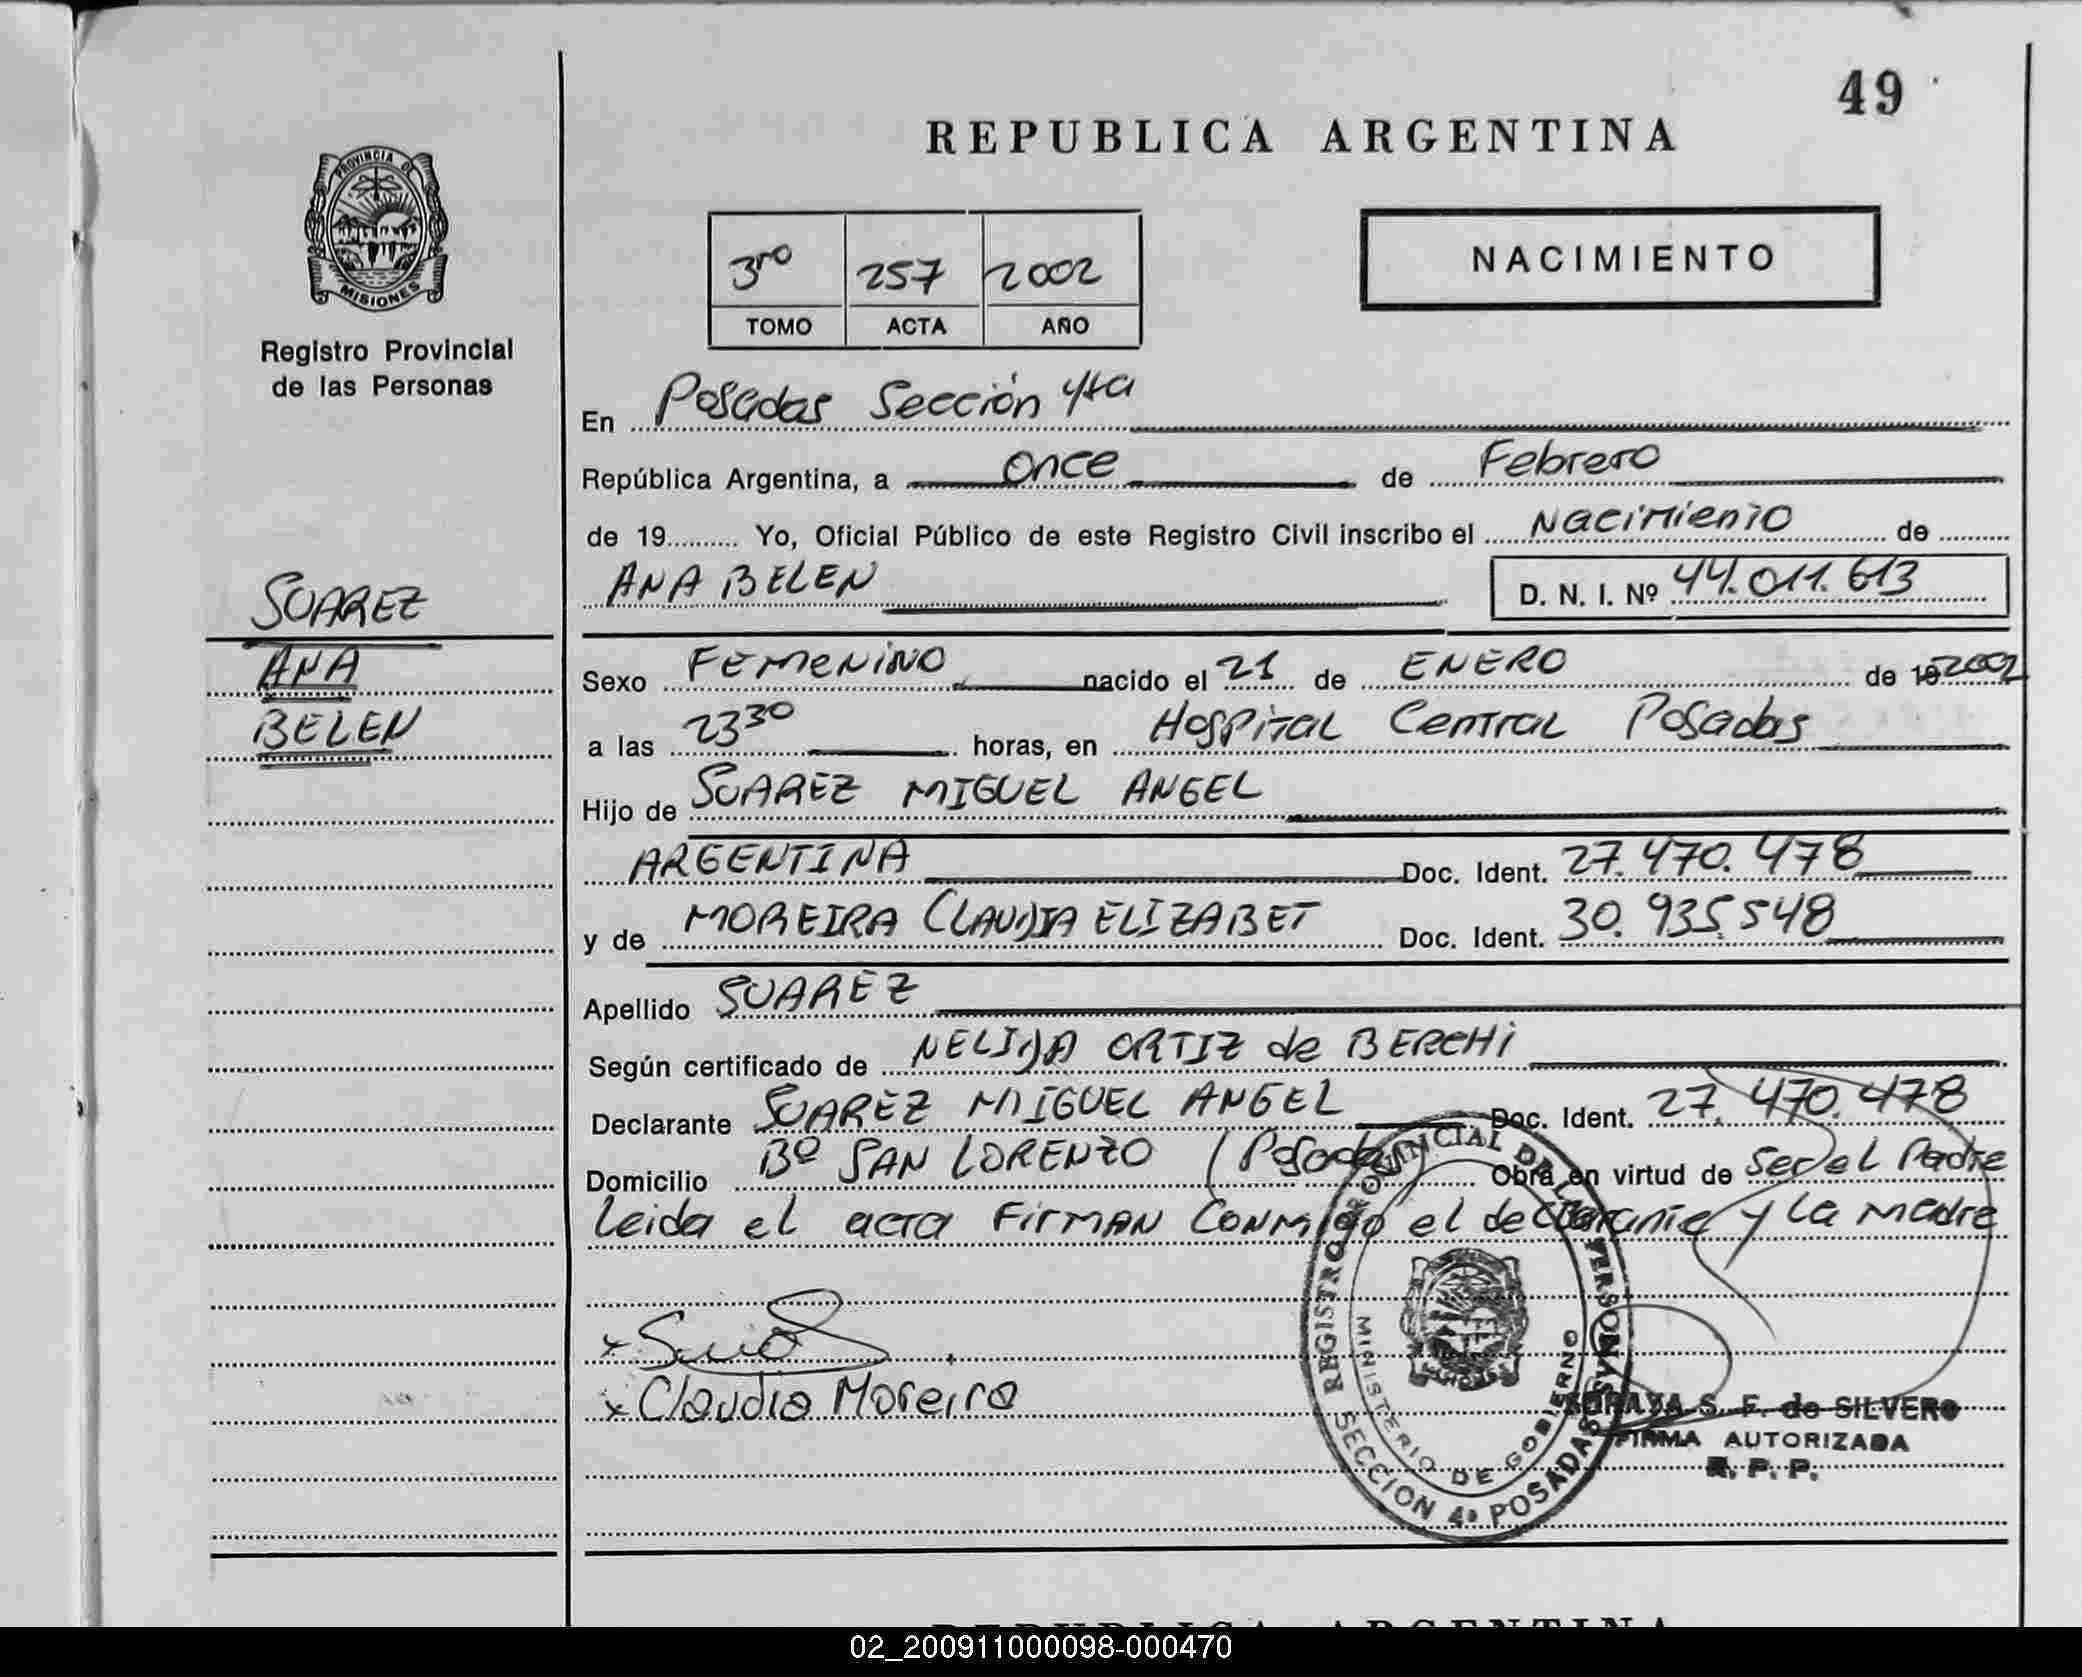 49
REPUBLICA ARGENTINA
PROVINCIA DE
MISIONES
Registro Provincial
de las Personas
NACIMIENTO
3ro 257 2002
TOMO ACTA AÑO
En Posadas Sección 4ta
República Argentina, a once de Febrero
de 19.......... Yo, Oficial Público de este Registro Civil inscribo el Nacimiento de
ANA BELEN D. N. I. Nº 44.011.613
SUAREZ
ANA
BELEN
Sexo FEMENINO nacido el 21 de ENERO de 19 2002
a las 23 30 horas, en Hospital Central Posadas
Hijo de SUAREZ MIGUEL ANGEL
ARGENTINA Doc. Ident. 27.470.478
y de MOREIRA CLAUDIA ELIZABET Doc. Ident. 30.935.548
Apellido SUAREZ
Según certificado de NELIDA ORTIZ de BERCHI
Declarante SUAREZ MIGUEL ANGEL Doc. Ident. 27.470.478
Domicilio Bº SAN LORENZO (Posadas) Obra en virtud de Ser el Padre
Leida el acta FIRMAN CONMigo el declarante y la madre
x
x Claudia Moreira
REGISTRO PROVINCIAL DE LAS PERSONAS
MINISTERIO DE GOBIERNO
SECCION 4ª POSADAS
SORAYA S. F. de SILVERO
FIRMA AUTORIZADA
R. P. P.
REPUBLICA ARGENTINA
02_200911000098-000470